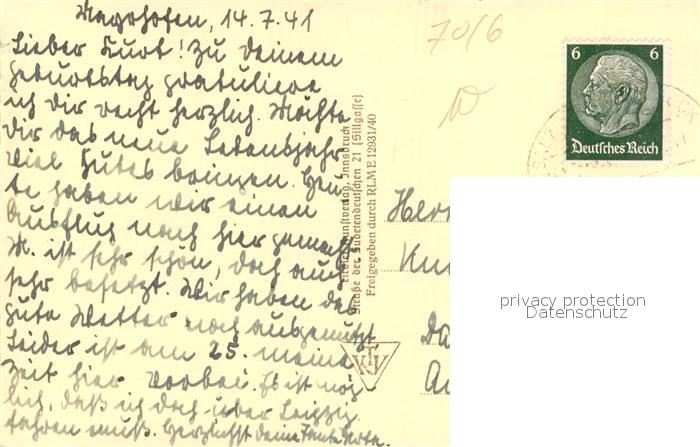 Mayrhofen, 14.7.41
Lieber Kurt! Zu deinem
Geburtstag gratuliere
ich dir recht herzlich. Möchte
dir das neue Lebensjahr
viel Gutes bringen. Heu-
te haben wir einen
Ausflug nach hier gemacht
M. ist sehr schön, doch auch
sehr besetzt. Wir haben das
gute Wetter noch ausgenutzt
Leider ist am 25. meine
Zeit hier vorbei. Es ist mög-
lich, daß ich doch über Leipzig
fahren muß. Herzlichst deine Tante
Tiroler Kunstverlag, Innsbruck
Straße der Sudetendeutschen 21 (Sillgasse)
Freigegeben durch RLM E 12931/40
TKV
70/6
6 6
Deutsches Reich
Herr
Ku
privacy protection
Datenschutz